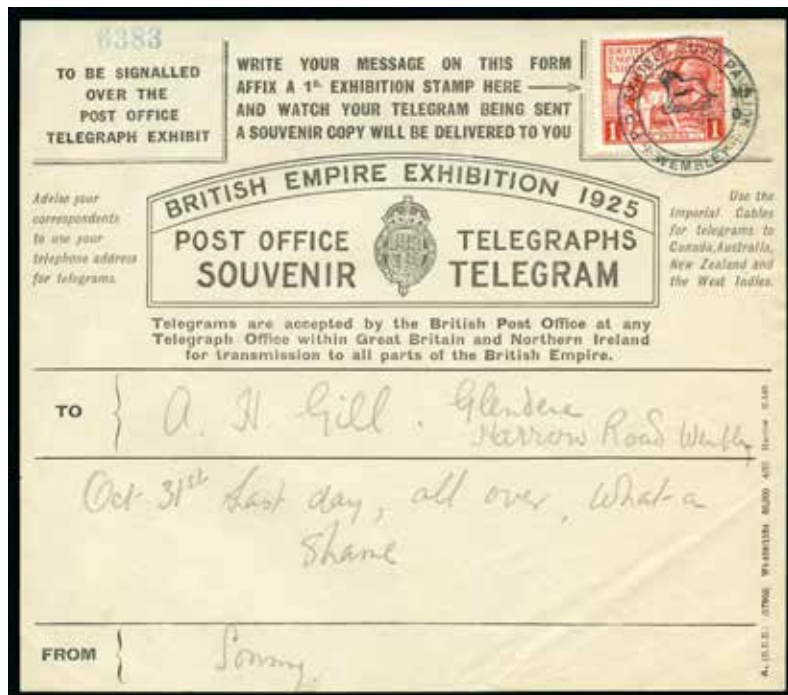 6383
TO BE SIGNALLED
OVER THE
POST OFFICE
TELEGRAPH EXHIBIT
WRITE YOUR MESSAGE ON THIS FORM
AFFIX A 1d. EXHIBITION STAMP HERE
AND WATCH YOUR TELEGRAM BEING SENT
A SOUVENIR COPY WILL BE DELIVERED TO YOU
BRITISH
1 1
WEMBLEY
Advise your
correspondents
to use your
telephone address
for telegrams.
BRITISH EMPIRE EXHIBITION 1925
POST OFFICE TELEGRAPHS
SOUVENIR TELEGRAM
Use the
Imperial Cables
for telegrams to
Canada, Australia,
New Zealand and
the West Indies.
Telegrams are accepted by the British Post Office at any
Telegraph Office within Great Britain and Northern Ireland
for transmission to all parts of the British Empire.
TO A. H. Gill. Glendene
Harrow Road Wembley
Oct 31st Last day, all over, What a
Shame
FROM Sonny.